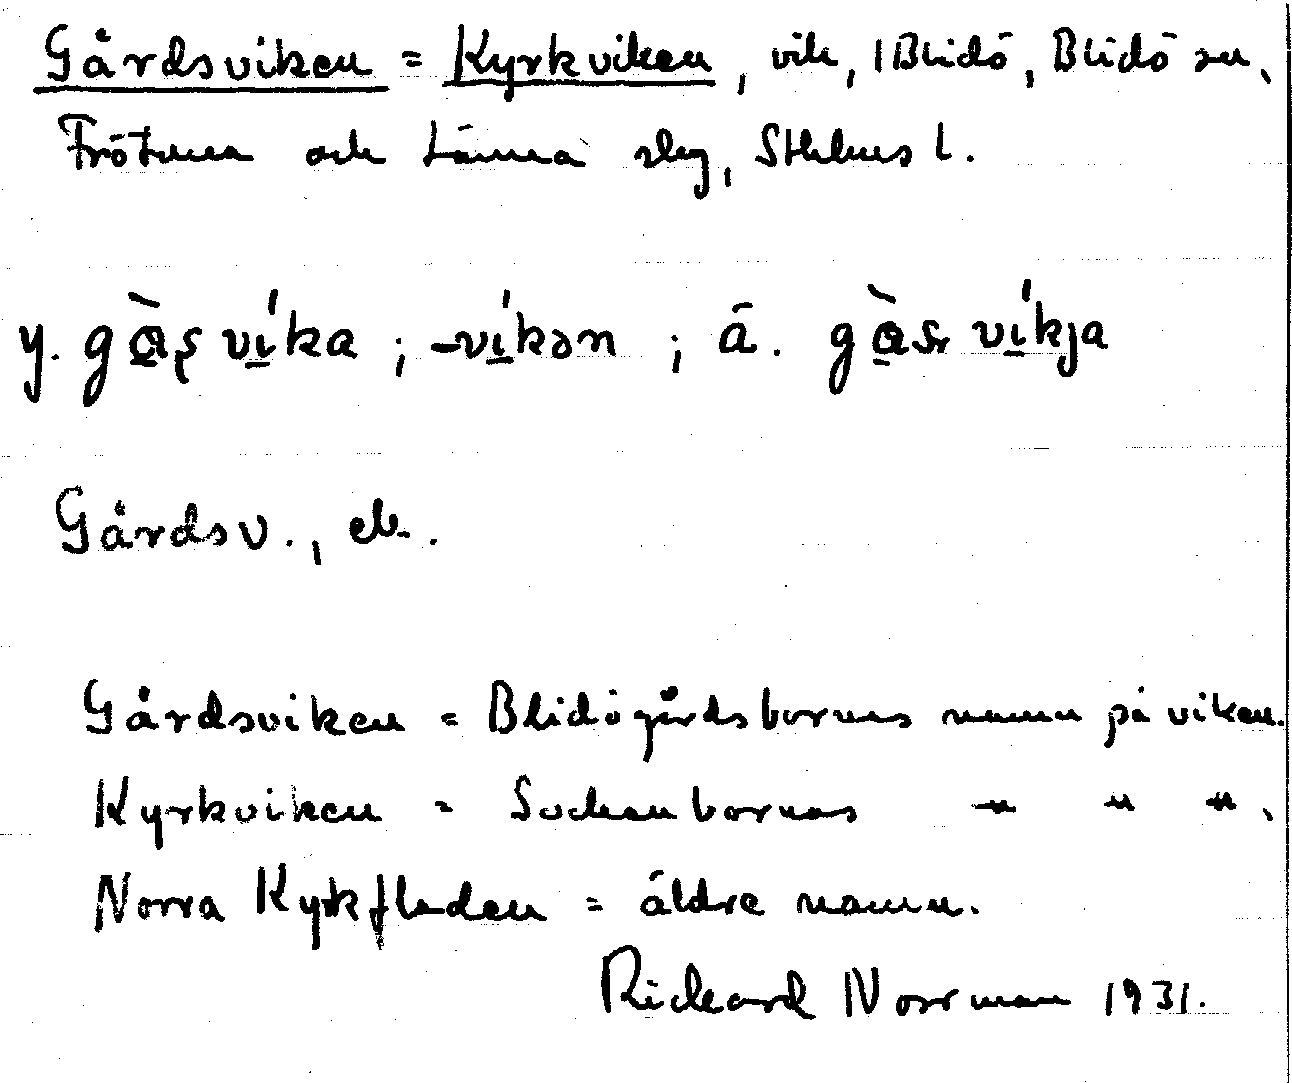 Gårdsviken = Kyrkviken, vik, i Blidö, Blidö sn,
Frötuna och Länna slg, Sthlms l.
y. gɑ̀ʂvi̱ka; -vi̱kən; ä. gɑ̀sr vi̱kja
Gårdsv., ek.
Gårdsviken = Blidögårdsbornas namn på viken.
Kyrkviken = Sockenbornas –"– " ".
Norra Kyrkfladen = äldre namn.
Rickard Norrman 1931.